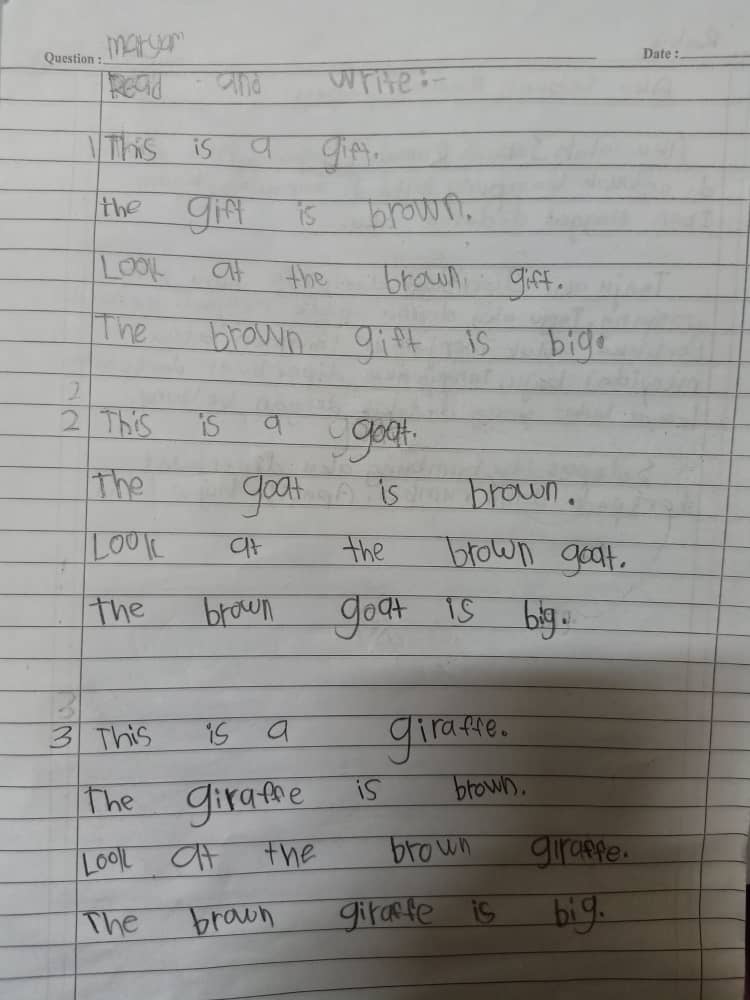 maryam
Question : Date :
Read and write:-
1 This is a gift.
the gift is brown.
Look at the brown gift.
The brown gift is big.
2
2 This is a goat.
The goat is brown.
Look at the brown goat.
the brown goat is big.
3
3 This is a giraffe.
The giraffe is brown.
Look at the brown giraffe.
The brown giraffe is big.